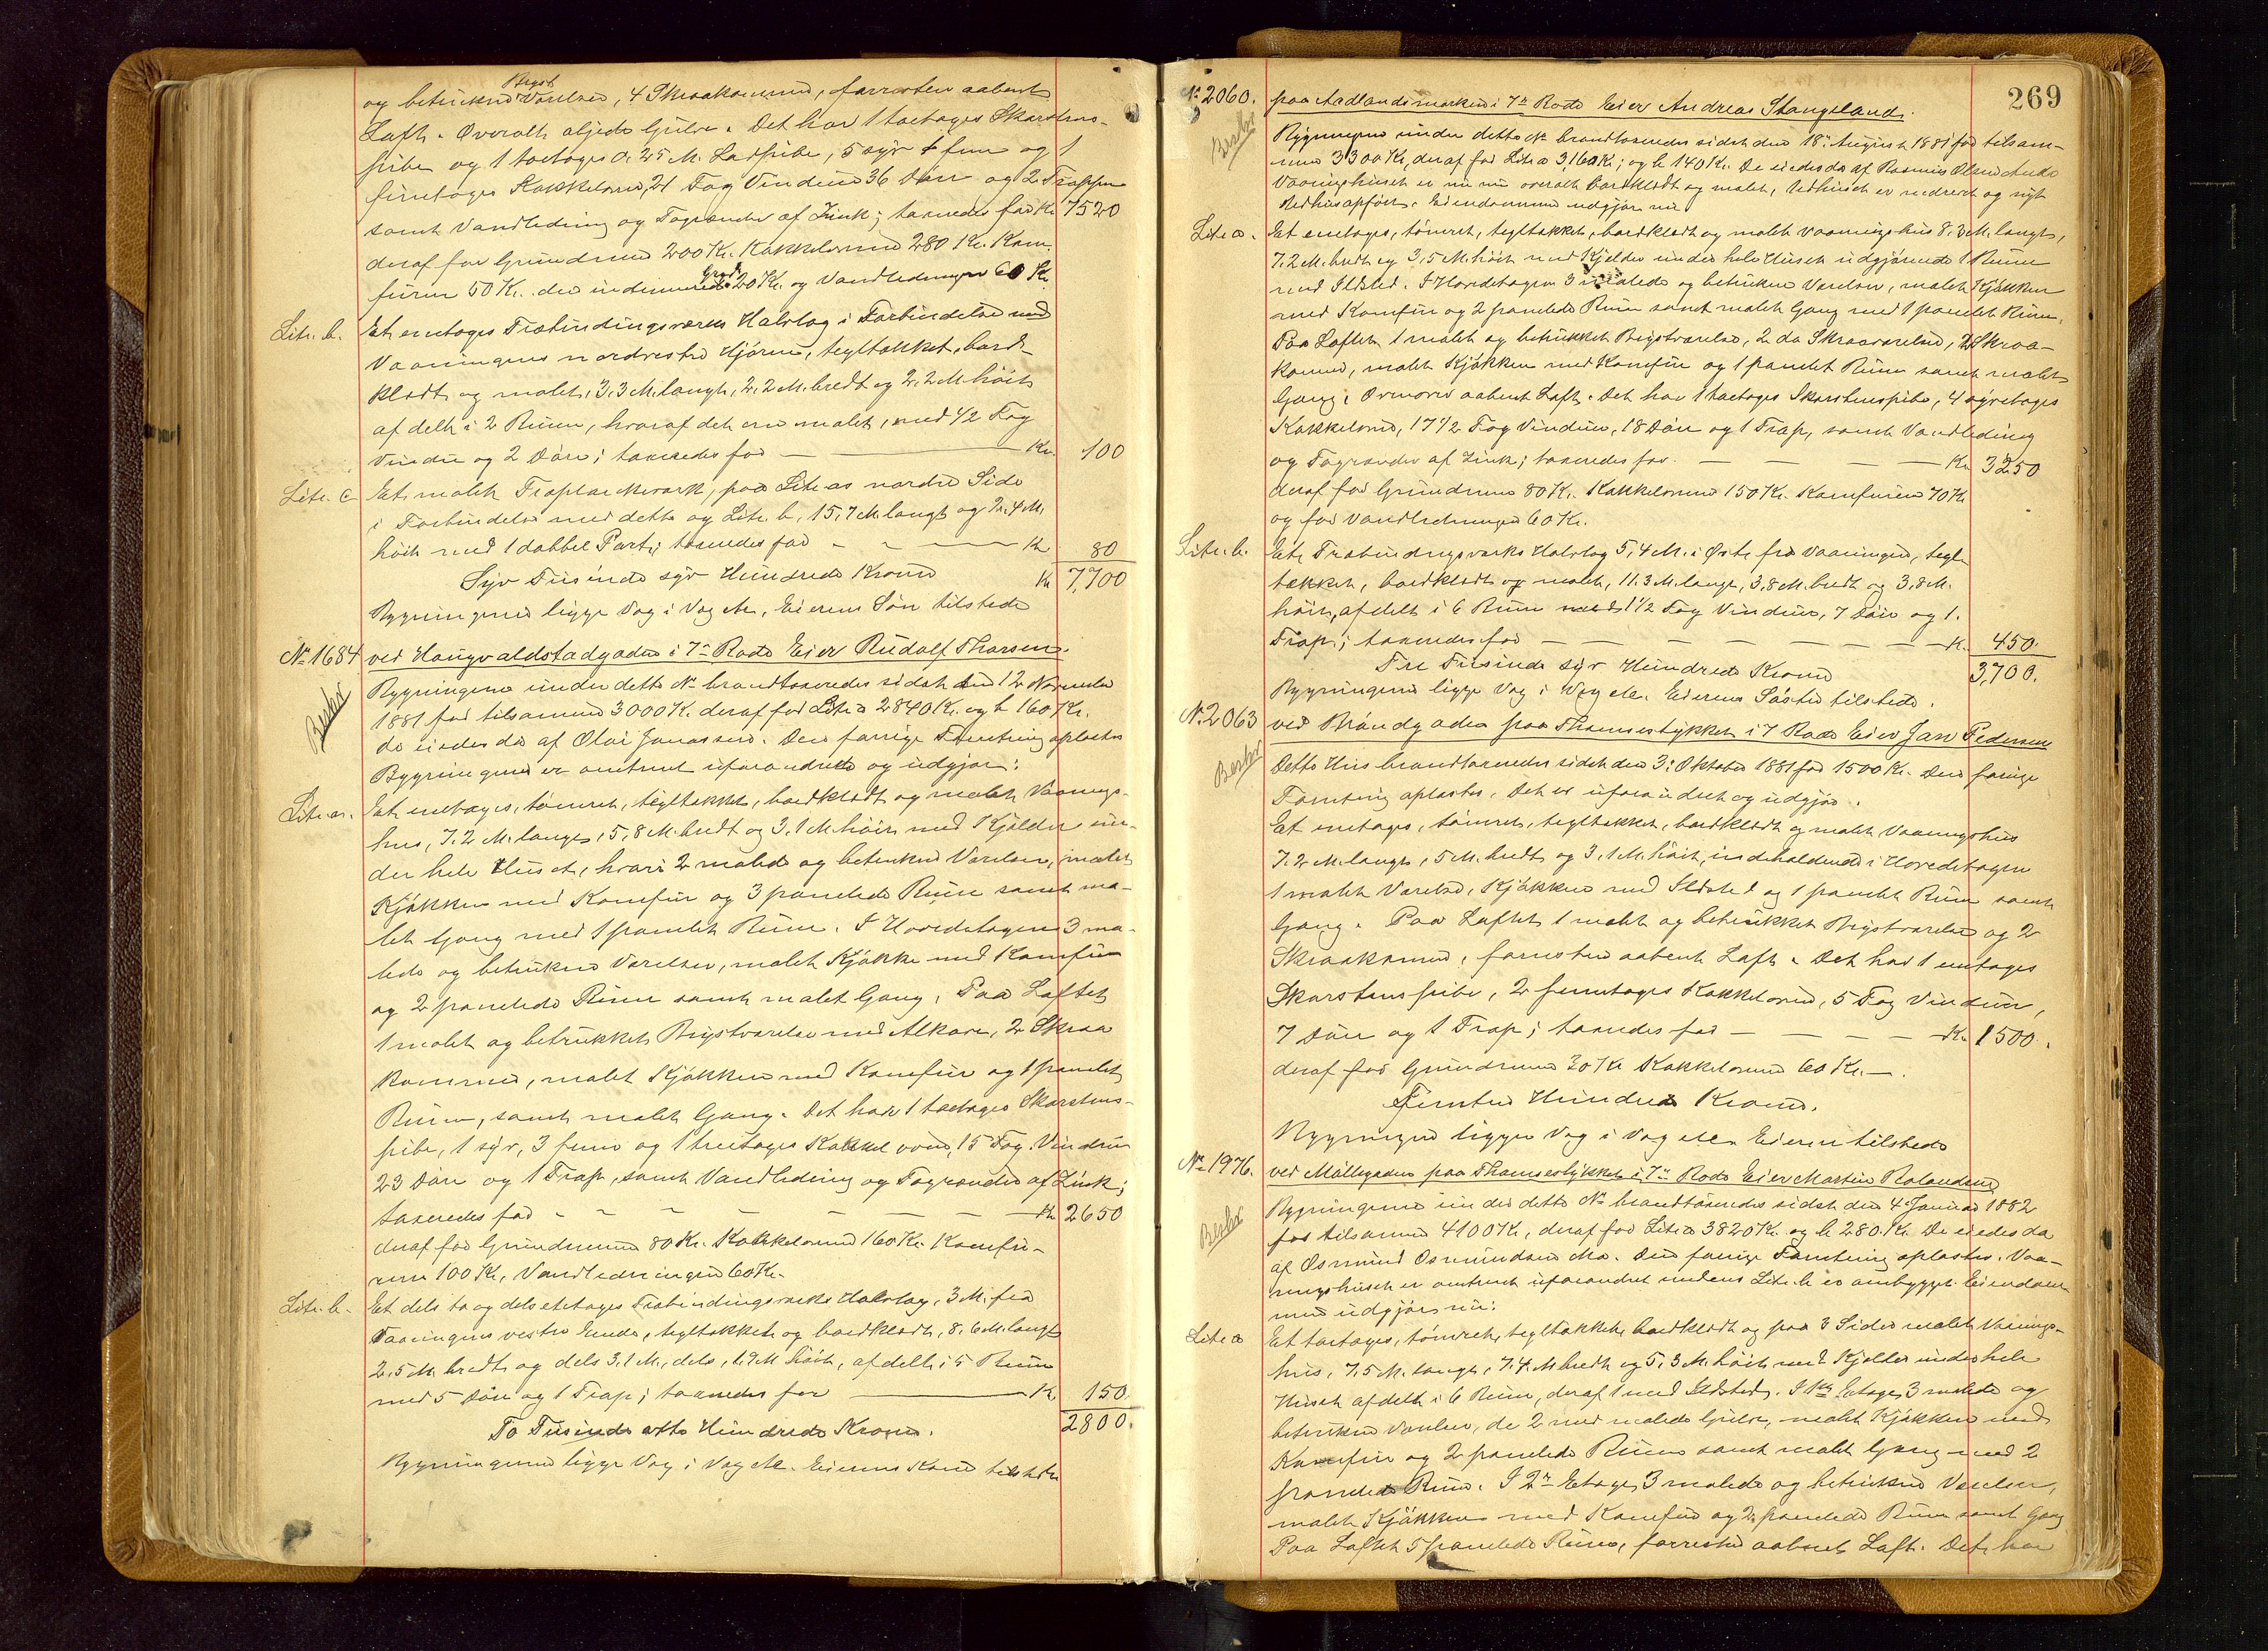 Bryst
og betrukne Værelser, 4 Skraakammer, forresten aabent
Loft. Overalt oljede Gulve. Det har 1 toetages Skorstens-
pibe og 1 toetages 0.25 M. Ladpibe, 5 syv, 4 fem og 1
firetages Kakkelovne, 21 Fag Vinduer 36 Døre og 2 Trapper
samt Vandledning og Tagrender af Zink; taxeredes for Kr. 7520
deraf for Grundmuren 200 Kr. Kakkelovnene 280 Kr. Kom-
furene 50 Kr. den indmurede Gryde 20 Kr. og Vandledningen 60 Kr.
Litr. b. Et enetages Træbindingsværks Halvtag i Forbindelse med
Vaaningens nordvestre Hjørne, tegltækket, bord-
klædt og malet, 3,3 M. langt, 2,2 M. bredt og 2,2 M. høit
afdelt i 2 Rum, hvoraf det ene malet, med 1/2 Fag
Vindu og 2 Døre; taxeredes for — Kr. 100
Litr. c. Et malet Træplankeværk, paa Litr. as nordre Side
i Forbindelse med dette og Litr. b, 15,7 M. langt og 2,4 M.
høit med 1 dobbel Port; taxeredes for — Kr. 80
Syv Tusinde syv Hundrede Kroner Kr 7,700
Bygningerne ligge Væg i Væg etc. Eierens Søn tilstede
No 1684 ved Haugvaldstadgaden i 7de Rode Eier Rudolf Thorsen.
Beskr
Bygningerne under dette No brandtaxeredes sidst den 12 November
1881 for tilsammen 3000 Kr. deraf for Litr a 2840 Kr. og b 160 Kr.
de eiedes da af Olai Jonassen. Den forrige Forretning oplæstes
Bygningerne er omtrent uforandrede og udgjør:
Litr. a. Et enetages, tømret, tegltækket, bordklædt og malet Vaanings-
hus, 7.2 M. langt, 5,8 M. bredt og 3,1 M. høit med Kjælder un-
der hele Huset, hvori 2 malede og betrukne Værelser, malet
Kjøkken med Komfur og 3 panelede Rum samt ma-
let Gang med 1 panelet Rum. I Hovedetagen 3 ma-
lede og betrukne Værelser, malet Kjøkken med Komfur
og 2 panelede Rum samt malet Gang. Paa Loftet
1 malet og betrukket Brystværelse med Alkove, 2 Skraa
kammer, malet Kjøkken med Komfur og 1 panelet
Rum, samt malet Gang. Det har 1 toetages Skorstens-
pibe, 1 syv, 3 fem og 1 treetages Kakkelovne, 15 Fag Vinduer
23 Døre og 1 Trap, samt Vandledning og Tagrender af Zink;
taxeredes for — Kr 2650
deraf for Grundmuren 80 Kr. Kakkelovnene 160 Kr. Komfu-
rene 100 Kr, Vandledningen 60 Kr.
Litr. b. Et dels to og dels etetages Træbindingsværks Halvtag, 3 M. fra
Vaaningens vestre Ende, tegltækket og bordklædt, 8,6 M. langt
2,5 M. bredt og dels 3,1 M., dels 1,9 M. høit, afdelt i 5 Rum
med 5 Døre og 1 Trap; taxeredes for — Kr. 150
To Tusinde otte Hundrede Kroner. 2800.
Bygningerne ligge Væg i Væg etc. Eierens Kone tilstede
269
No 2060. paa Aadlandsmarken i 7de Rode Eier Andreas Stangeland.
Beskr
Bygningerne under dette No brandtaxeredes sidst den 18de August 1881 for tilsam-
men 3300 Kr, deraf for Litr a 3,160 Kr; og b 140 Kr. De eiedes da af Rasmus Olsen
Vaaningshuset er nu overalt bordklædt og malet, Udhuset er nedrevet og nyt
Udhus opført. Eiendommen udgjør nu:
Litr a. Et enetages, tømret, tegltækket, bordklædt og malet Vaaningshus 8,3 M. langt,
7.2 M. bredt og 3,5 M. høit med Kjelder under hele Huset udgjørende 1 Rum
med Ildsted. I Hovedetagen 3 malede og betrukne Værelser, malet Kjøkken
med Komfur og 2 panelede Rum samt malet Gang med 1 panelet Rum.
Paa Loftet 1 malet og betrukket Brystværelse, 2 do Skraaværelse, 2 Skraa-
kammer, malet Kjøkken med Komfur og 1 panelet Rum samt malet
Gang. Ovenover aabent Loft. Det har 1 toetages Skorstenspibe, 4 syvetages
Kakkelovne, 17 1/2 Fag Vinduer, 18 Døre og 1 Trap, samt Vandledning
og Tagrender af Zink; taxeredes for — Kr 3250
deraf for Grundmuren 80 Kr. Kakkelovnene 150 Kr. Komfurene 70 Kr
og for Vandledningen 60 Kr.
Litr. b. Et Træbindingsværks Halvtag 5,4 M. i Øst fra Vaaningen, tegl-
tækket, bordklædt og malet, 11.3 M. langt, 3,8 M. bredt og 3,8 M.
høit, afdelt i 6 Rum med 1 1/2 Fag Vinduer, 7 Døre og 1
Trap; taxeredes for — Kr. 450.
Tre Tusinde syv Hundrede Kroner 3,700.
Bygningerne ligge Væg i Væg etc. Eierens Søster tilstede.
No 2063 ved Brøndgaden paa Thomsestykket i 7 Rode Eier Jan Pedersen
Beskr
Dette Hus brandtaxeredes sidst den 3: Oktober 1881 for 1500 Kr. Den forrige
Forretning oplæstes. Det er uforandret og udgjør.
Et enetages, tømret, tegltækket, bordklædt og malet Vaaningshus
7.2 M. langt, 5 M. bredt og 3,1 M. høit, indeholdende i Hovedetagen
1 malet Værelse, Kjøkken med Ildsted og 1 panelet Rum samt
Gang. Paa Loftet 1 malet og betrukket Brystværelse og 2
Skraakammer, forresten aabent Loft. Det har 1 enetages
Skorstenspibe, 2 femetages Kakkelovne, 5 Fag Vinduer,
7 Døre og 1 Trap; taxeredes for — Kr 1500.
deraf for Grundmuren 30 Kr Kakkelovnene 60 Kr.—.
Femten Hundrede Kroner.
Bygningen ligger Væg i Væg etc. Eieren tilstede
No 1976. ved Møllegaden paa Thomsestykket i 7de Rode Eier Martin Rolandsen
Beskr
Bygningerne under dette No brandtaxeredes sidst den 4 Januar 1882
for tilsammen 4100 Kr, deraf for Litr a 3820 Kr. og b 280 Kr. De eiedes da
af Osmund Osmundsen Mo. Den forrige Forretning oplæstes. Vaa-
ningshuset er omtrent uforandret medens Litr. b er ombygget. Eiendom-
men udgjør nu:
Litr a Et toetages, tømret, tegltækket, bordklædt og paa 3 Sider malet Vaanings-
hus, 7,5 M. langt, 7.4 M bredt og 5,3 M. høit med Kjelder under hele
Huset afdelt i 6 Rum, deraf 1 med Ildsted. I 1ste Etage 3 malede og
betrukne Værelser, de 2 med malede Gulve, malet Kjøkken med
Komfur og 2 panelede Rum samt malet Gang med 2
panelede Rum. I 2den Etage 3 malede og betrukne Værelser,
malet Kjøkken med Komfur og 2 panelede Rum samt Gang
Paa Loftet 5 panelede Rum, forresten aabent Loft. Det har